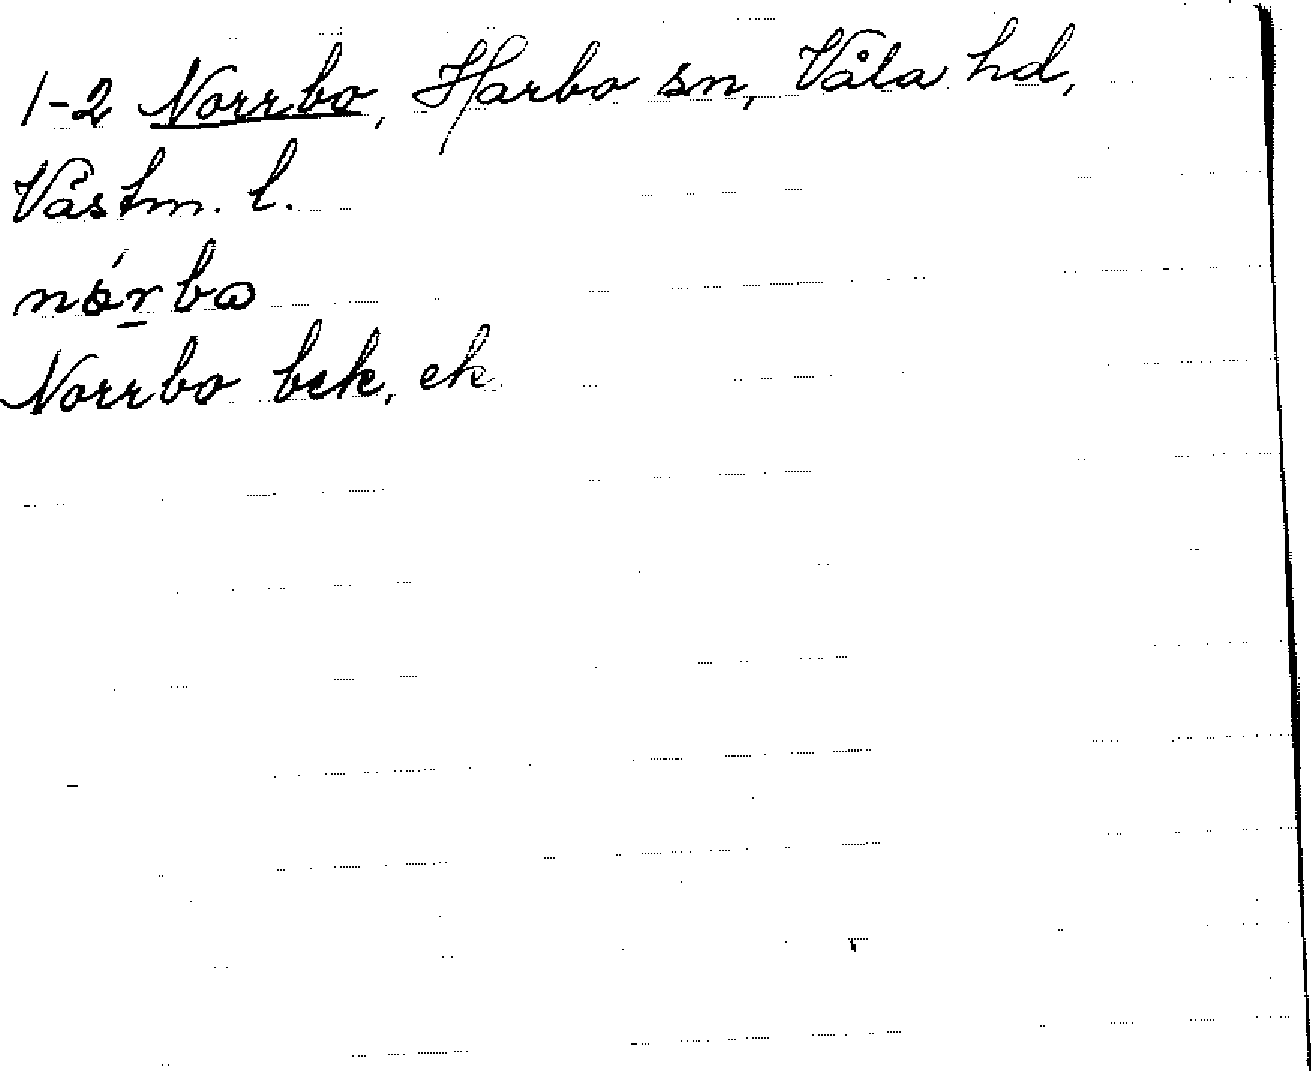 1-2 Norrbo, Harbo sn, Våla hd,
Västm. l.
nórbo
Norrbo bek, ek